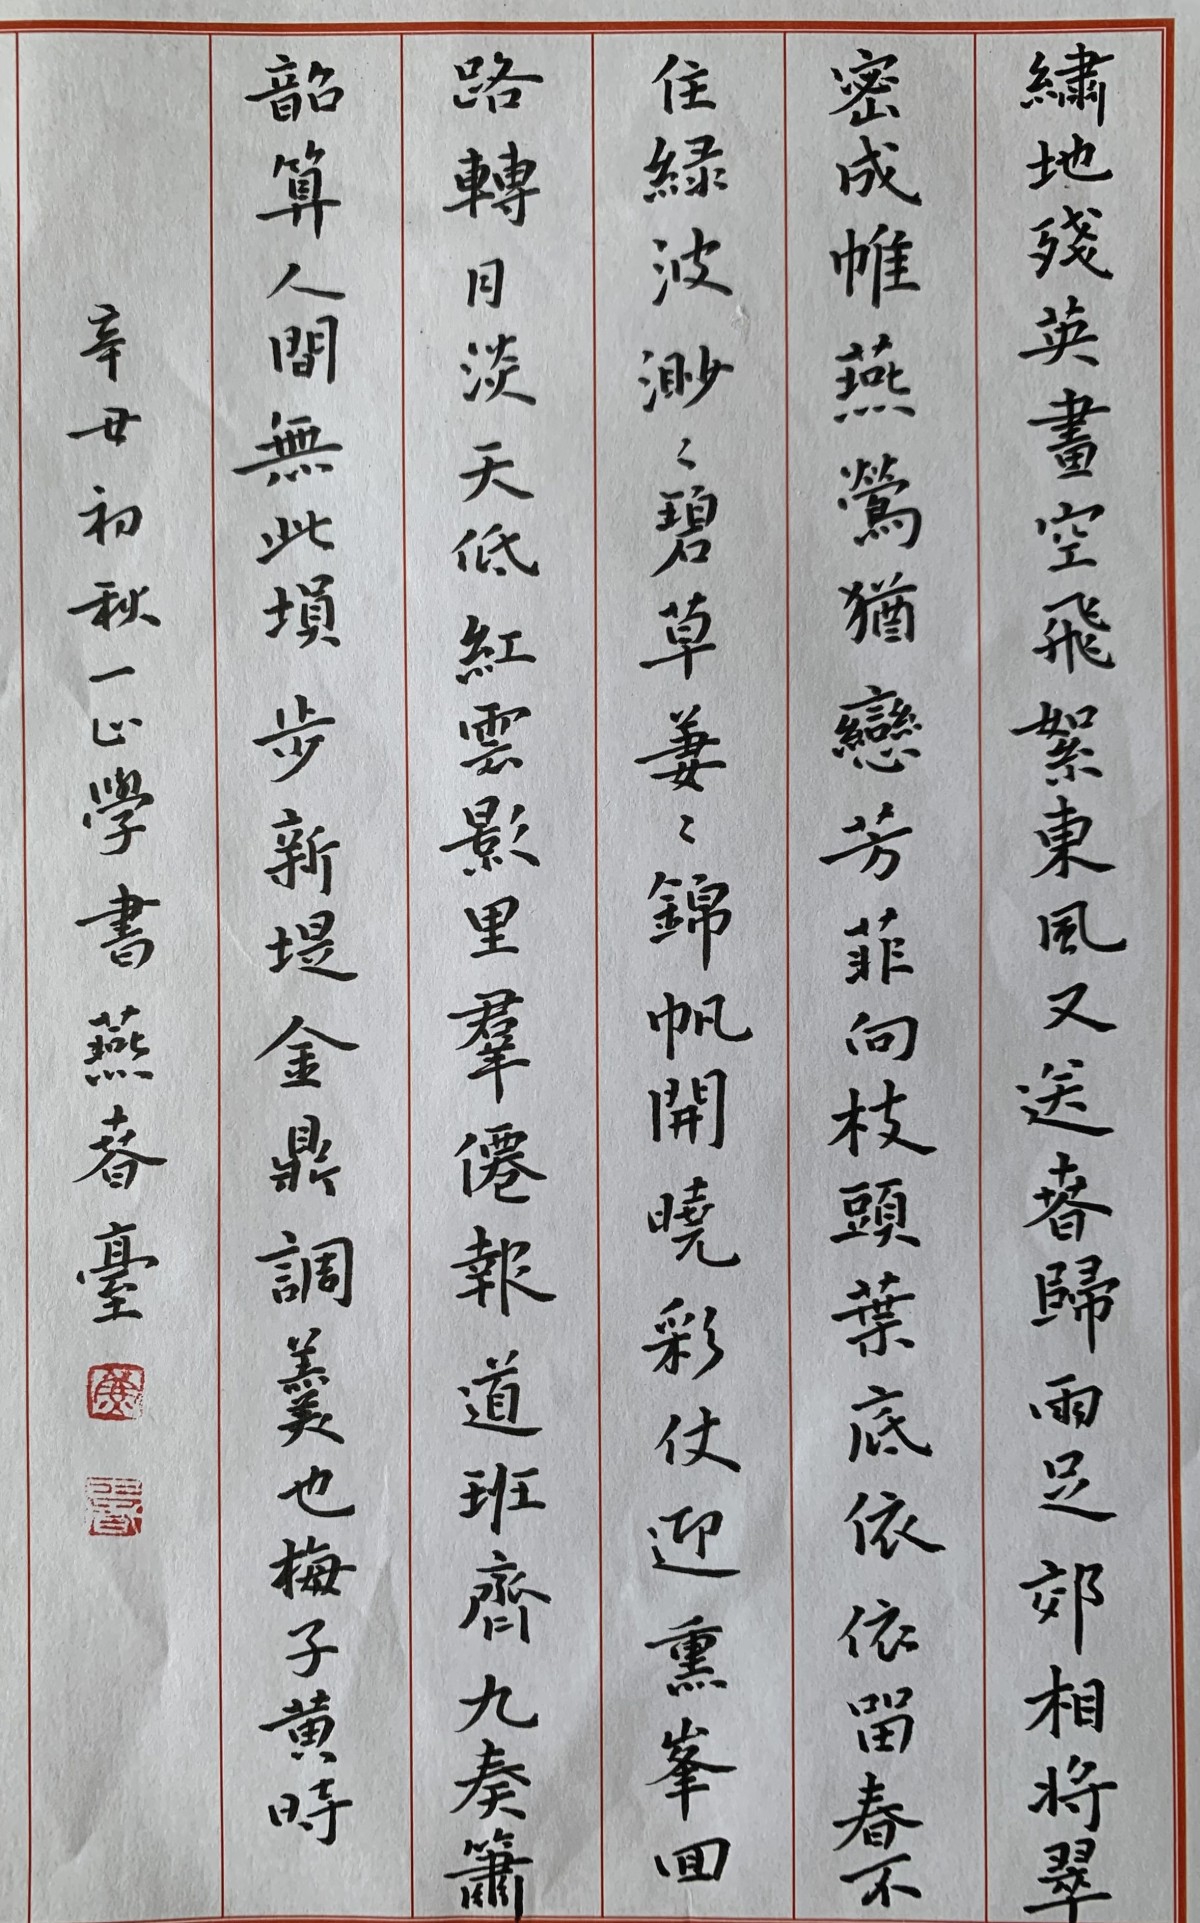 繡地殘英畫空飛絮東風又送春歸雨足郊相將翠
密成帷燕鶯猶戀芳菲向枝頭葉底依依留春不
住緑波渺〻碧草萋〻錦帆開曉彩仗迎熏峯回
路轉日淡天低紅雲影里羣僊報道班齊九奏簫
韶算人間無此塤步新堤金鼎調羹也梅子黄時
辛丑初秋一心學書燕春臺